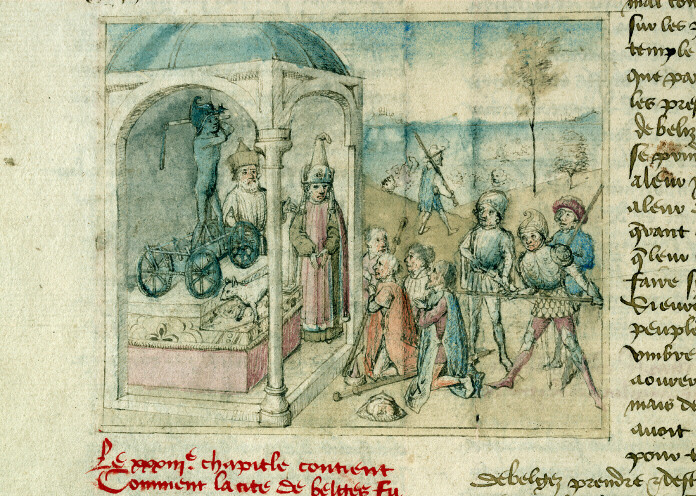 mal con
sur les
temple
que pa
les pres
de beliz
se
a leur
a leur
quant
q leur
faire s
vieux
peuple
umbre
aourer
mais de
avoit
pour t
Le xxxiii.e chapitle contient
Comment la cite de belges fu
de belges prendre & des